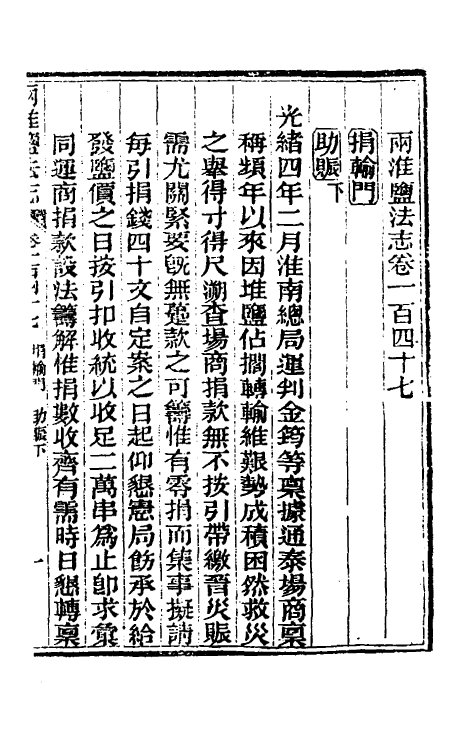 兩淮鹽法志卷一百四十七
捐輸門
助賑下
光緒四年二月淮南總局運判金筠等稟據通泰場商稟
稱頻年以來因堆鹽佔擱轉輸維艱勢成積困然救災
之舉得寸得尺溯查場商捐款無不按引帶繳晉災賑
需尤關緊要旣無墊款之可籌惟有零捐而集事擬請
每引捐錢四十文自定案之日起仰懇憲局飭承於給
發鹽價之日按引扣收統以收足二萬串為止卽求彙
同運商捐款設法籌解惟捐數收齊有需時日懇轉稟
兩淮鹽法志 卷一百四十七 捐輸門 助賑下 一